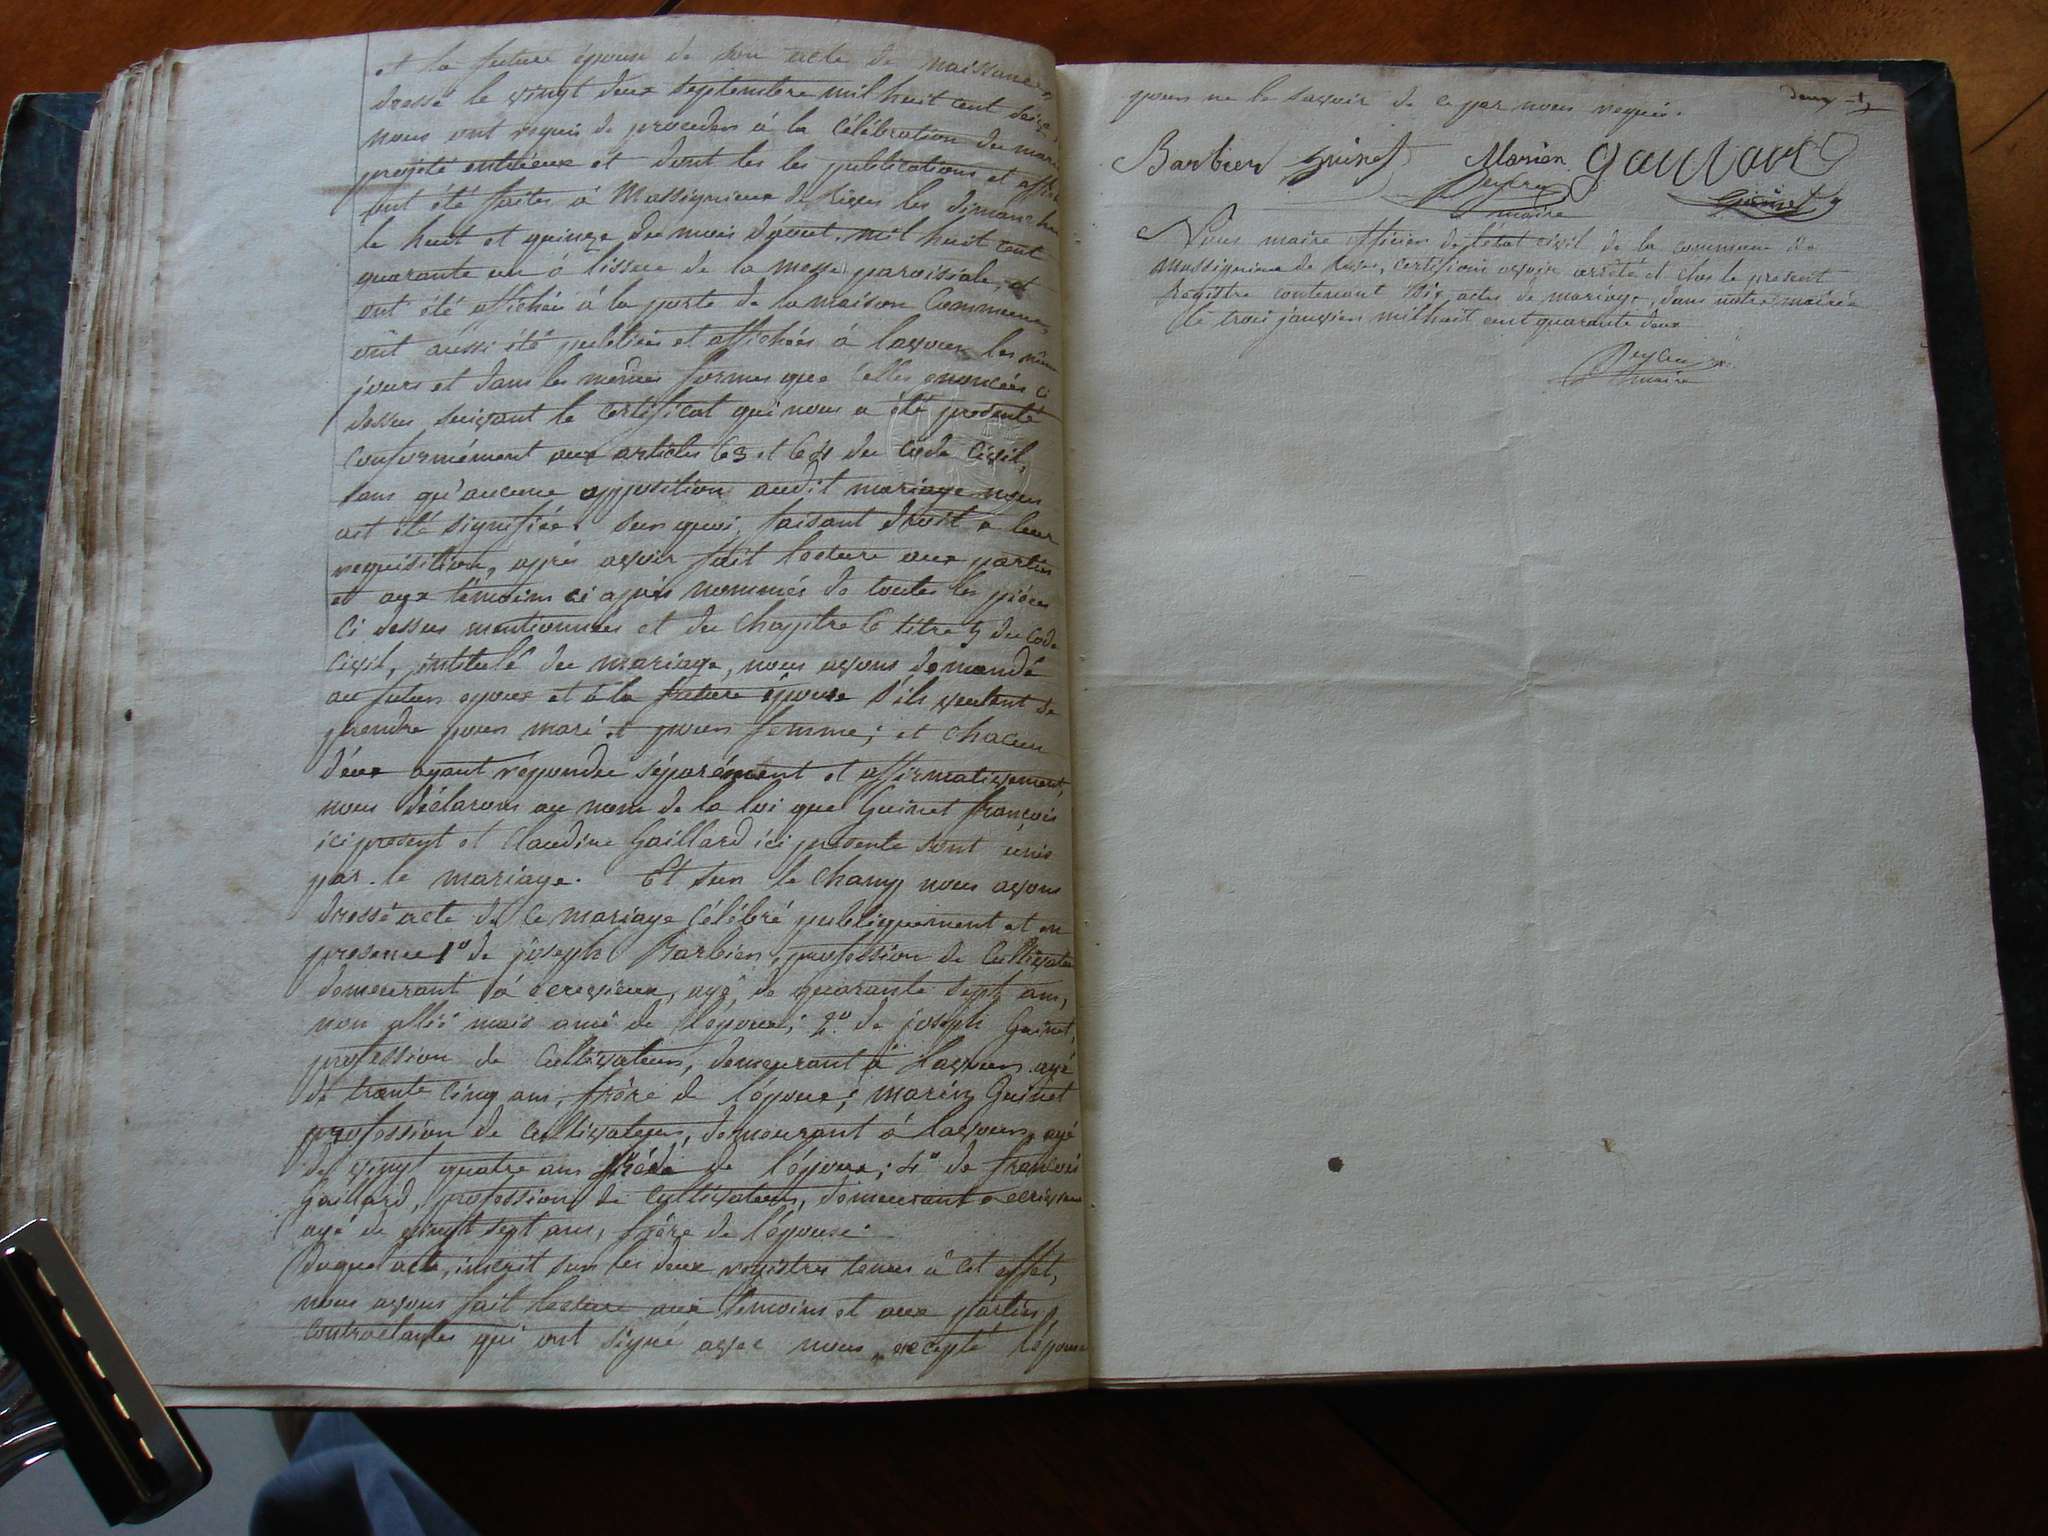 et la future épouse de son acte de naissance
dressé le vingt deux septembre mil huit cent seize,
nous ont requis de proceder à la Célébration du mari
projété entr'eux et dont les les publications et affich
ont été faites à Massignieux de Rives les dimanche
le huit et quinze du mois d'août mil huit cent
quarante un à l'issue de la messe paroissiale, et
ont été affichée à la porte de la maison Commune,
ont aussi été publiées et affichées à lavours les même
jours et dans les mêmes formes que celles enoncées ci
dessus suivant le certificat qui nous a été presenté
conformément aux articles 63 et 64 du Code Civil,
sans qu'aucune opposition audit mariage nous
ait été signifiée. sur quoi, faisant droit a leur
requisition, après avoir fait lecture aux parties
et aux témoins ci après nommés de toutes les pièces
ci dessus mentionnées et du chapitre 6 titre 5 du Code
Civil, intitulé du mariage, nous avons demandé
au futur epoux et à la future épouse s'ils veulent se
prendre pour mari et pour femme; et chacun
d'eux ayant repondu séparément et affirmativement,
nous déclarons au nom de la loi que Guinet françois
ici present et Claudine Gaillard ici présente sont unis
par le mariage. Et sur le champ nous avons
dressé acte de ce mariage célébré publiquement et en
presence 1º de joseph Barbier, profession de Cultivate
demeurant à ecrivieux, agé de quarante sept ans,
non allié mais ami de l'époux; 2º de joseph Guinet,
profession de Cultivateur, demeurant à Lavours agé
de trente cinq ans, frère de l'époux; marin Guinet
profession de Cultivateur, demeurant à lavours, agé
de vingt quatre ans de l'époux; 4º de françois
Gaillard, profession de cultivateur, demeurant a ecrivieux
agé de vingt sept ans, frère de l'épouse.
Duquel acte, inscrit sur les deux registres tenus à cet effet,
nous avons fait lecture aux temoins et aux parties
contractantes qui ont signé avec nous, excepté l'épouse
pour ne le savoir de ce par nous requis.
Barbier Guinet Marin Gaillard
maire Guinet
Nous maire officier de l'etat civil de la commune de
Massignieux de Rives, certifions avoir arrêté et clos le present
Registre contenant dix actes de mariage, dans notre mairie
le trois janvier mil huit cent quarante deux
maire